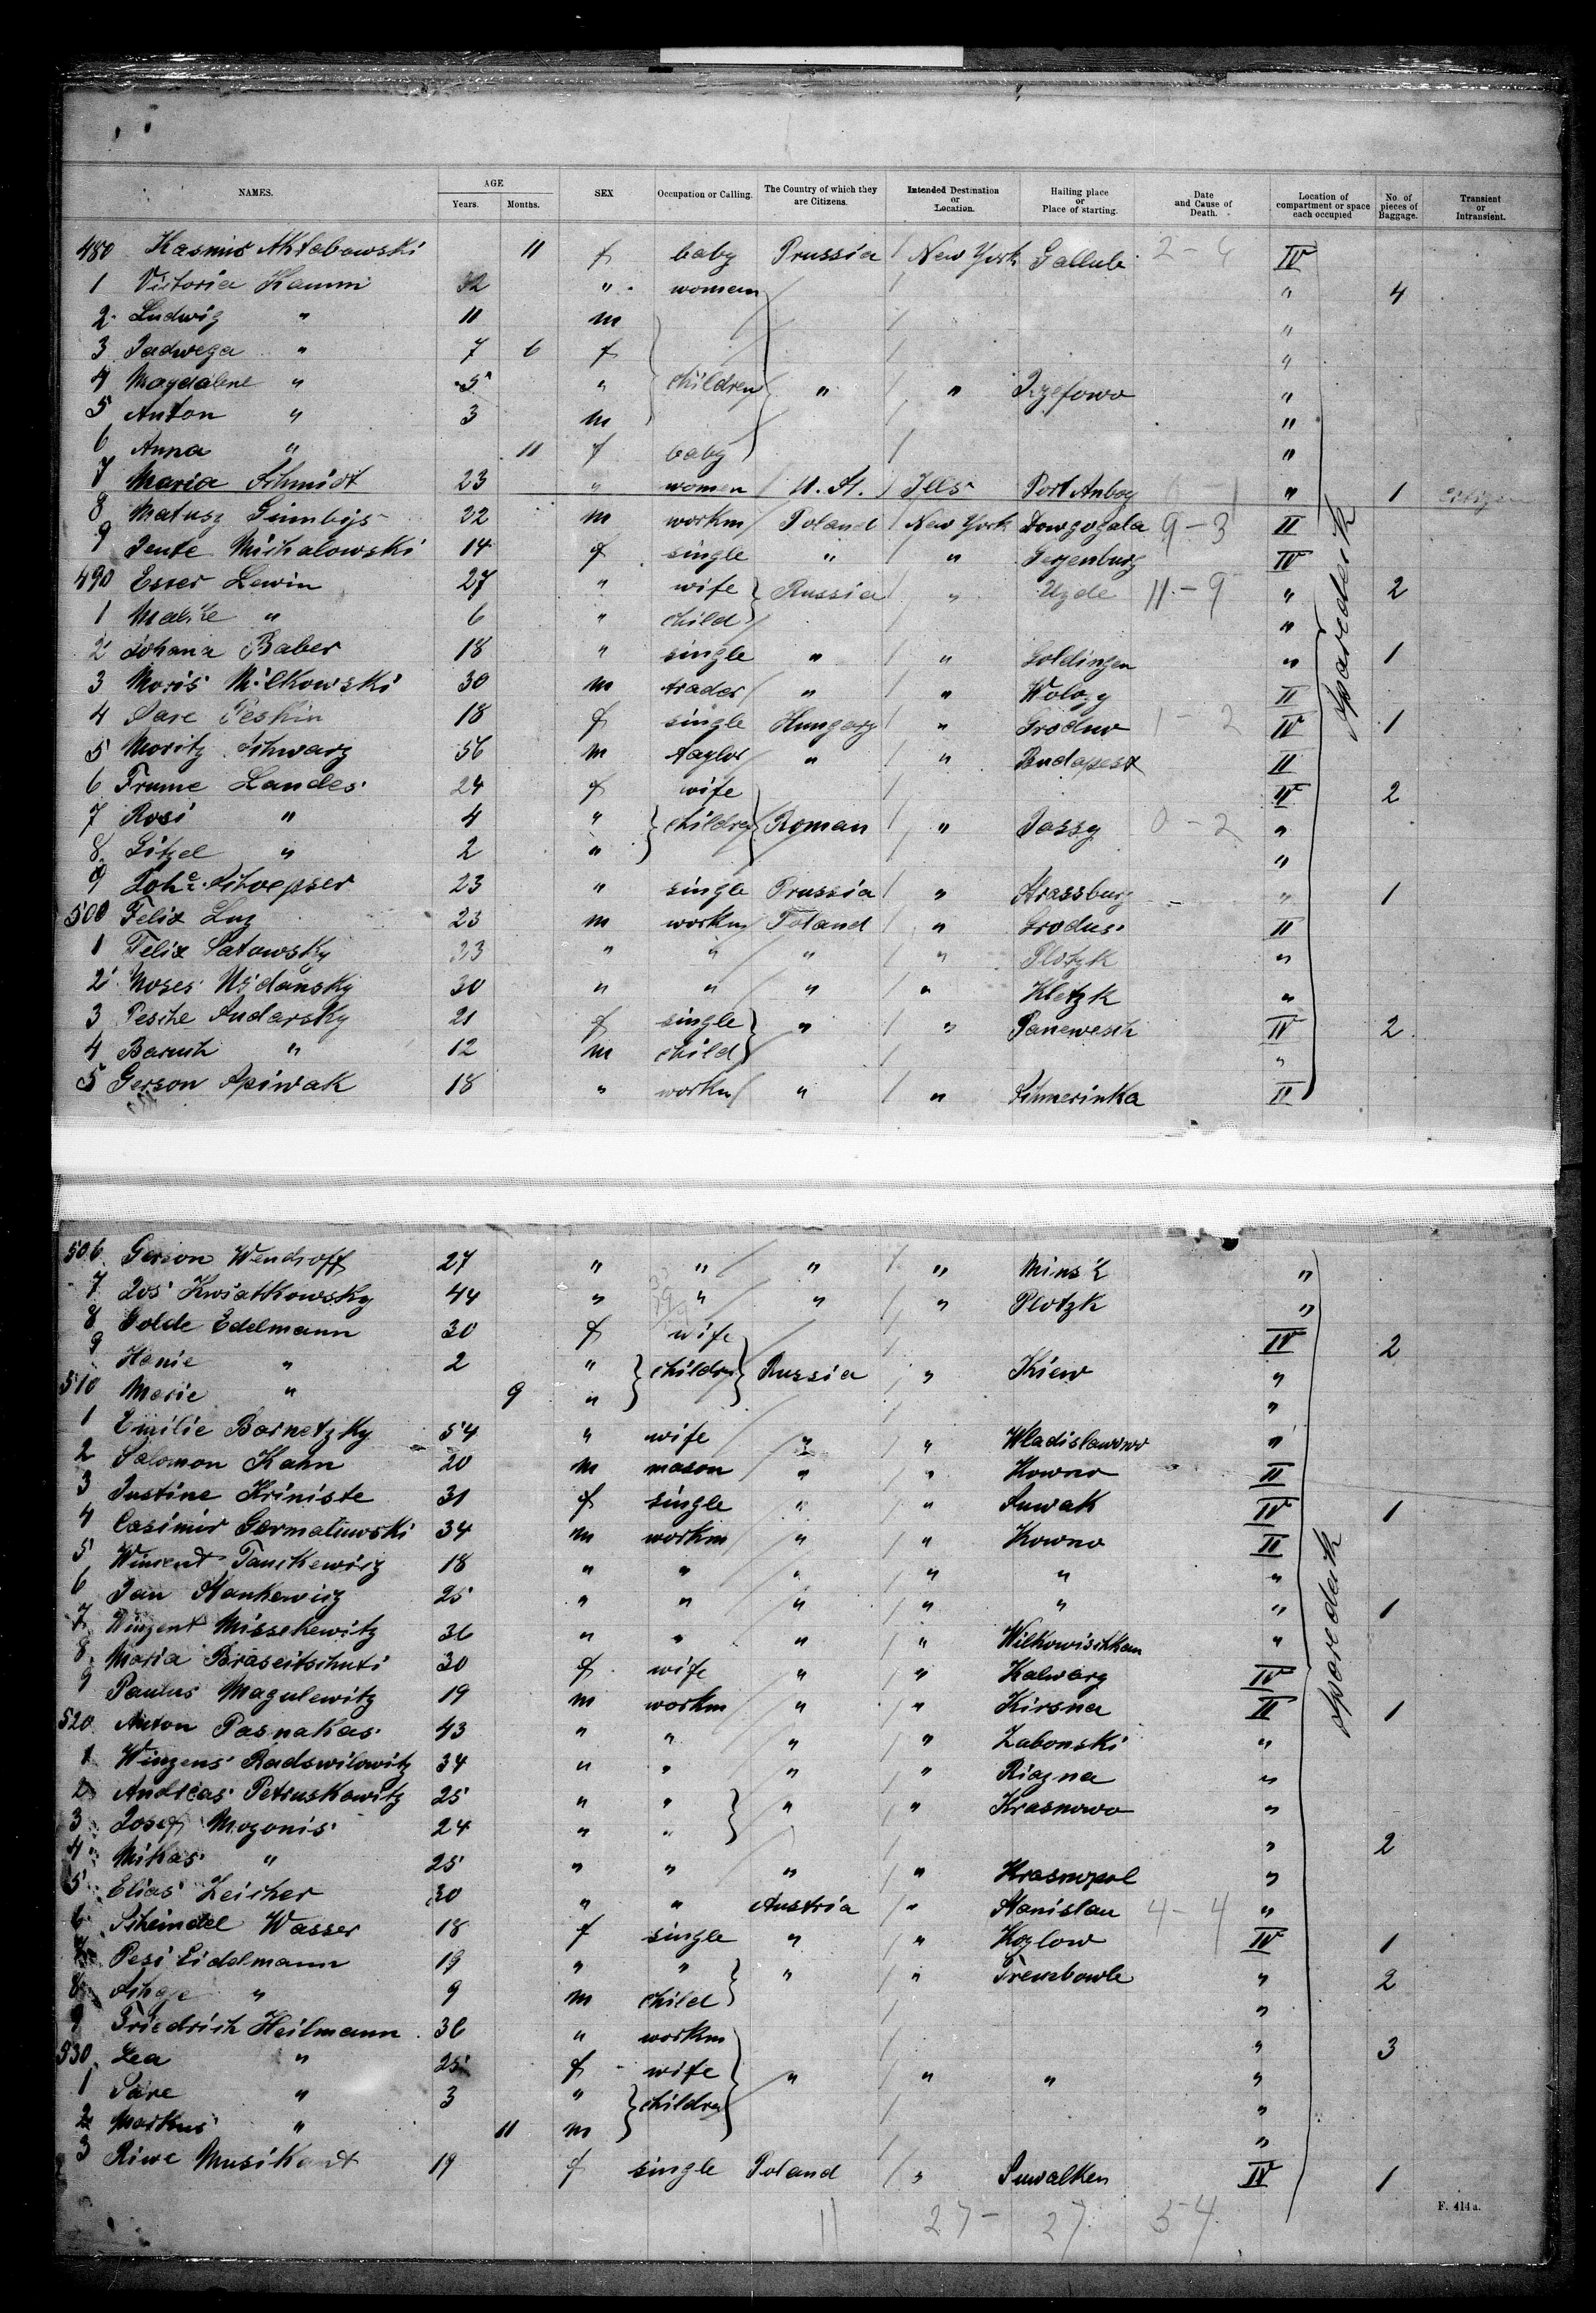 NAMES. AGE Years. Months. SEX Occupation or Calling. The Country of which they are Citizens. Intended Destination or Location. Hailing place or Place of starting. Date and Cause of Death. Location of compartment or space each occupied No. of pieces of Baggage. Transient or Intransient.
480 Kasmir Aktabowski 11 f baby Prussia New York Gollub 2-4 IV
1 Victoria Kamin 32 " women " 4
2 Ludwig " 11 m "
3 Jadwega " 7 6 f "
4 Magdalene " 5 " children " " "
5 Anton " 3 m "
6 Anna " 11 f baby "
7 Maria Schmidt 23 " women U. St. Ills Port Anboy " 1 citizen
8 Matusz Gumbijs 22 m workm Poland New York Dowgogala 9-3 II
9 Jente Michalowski 14 f single " " IV
490 Esser Lewin 27 " wife Russia " Uzde 11-9 " 2
1 " 6 " child "
2 Johana Baber 18 " single " " Goldingen " 1
3 Moris Milkowski 30 m trader " " II
4 Sare Peskin 18 f single Hungary " Grodno 1-2 IV 1
5 Moritz Schwarz 56 m taylor " " Budapest II
6 Frume Landes 24 f wife IV 2
7 Rosi " 4 " children Roman " Jassy 0-2 "
8 Gitzel " 2 " "
9 Johe Schoepser 23 " single Prussia " Strassburg " 1
500 Felix Luz 23 m workm Poland " II
1 Felix Satowsky 23 " " " " Plotzk "
2 Moses Usdansky 30 " " " " Kletzk "
3 Pesche Sudarsky 21 f single " " Panewesch IV 2
4 Baruch " 12 m child "
5 Gerson Spiwak 18 " workm " " Schmerinka II
Sparedeck
506 Gerson Wendroff 27 " " " " Minsk "
7 Jos Kwiatkowsky 44 " " " " Plotzk "
8 Golde Edelmann 30 f wife IV 2
9 Hanie " 2 " children Russia " Kiew "
510 Marie " 9 " "
1 Emilie Bornetzky 54 " wife " " Wladislawowo "
2 Salomon Kahn 20 m mason " " Kowno II
3 Justine Kriniste 31 f single " " Suwalk IV 1
4 Casimir Germaliuwski 34 m workm " " Kowno II
5 18 " " " " " "
6 Jan Stankewicz 25 " " " " " " 1
7 Winzent Missehewitz 36 " " " " "
8 Maria 30 f wife " " Kalwary IV
9 Paulus Magulewitz 19 m workm " " Kirsna II 1
520 Anton Pasnakas 43 " " " " Zabonski "
1 Winzens Radswilowitz 34 " " " " Riazna "
2 Andreas Petruskowitz 25 " " " " Krasnowo "
3 Josef Mozonis 24 " " " 2
4 Mikas " 25 " " " " Krasnopol "
5 Elias Zeicher 30 " " Austria " Stanislau 4-4 "
6 Scheindel Wasser 18 f single " " Kozlow IV 1
7 Pesi Eidelmann 19 " " " " Trembowle " 2
8 " 9 m child "
9 Friedrich Heilmann 36 " workm " 3
530 Lea " 25 f wife " " " "
1 Sare " 3 " children "
2 Markus " 11 m "
3 Riwe Musikandt 19 f single Poland " Suwalken IV 1
Sparedeck
11 27- 27 54
F. 414a.